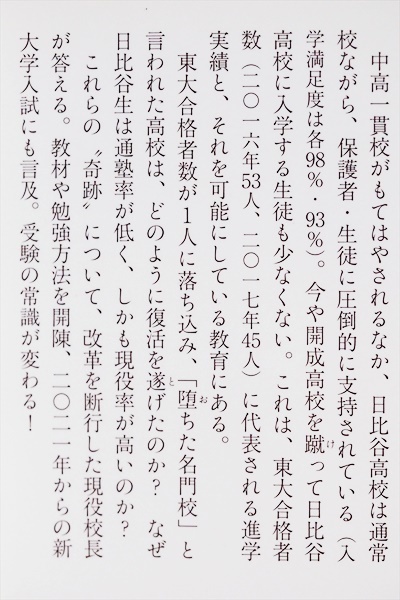 中高一貫校がもてはやされるなか、日比谷高校は通常
校ながら、保護者・生徒に圧倒的に支持されている（入
学満足度は各98％・93％）。今や開成高校を蹴って日比谷
高校に入学する生徒も少なくない。これは、東大合格者
数（二〇一六年53人、二〇一七年45人）に代表される進学
実績と、それを可能にしている教育にある。
　東大合格者数が1人に落ち込み、「堕ちた名門校」と
言われた高校は、どのように復活を遂げたのか？　なぜ
日比谷生は通塾率が低く、しかも現役率が高いのか？
　これらの〝奇跡〟について、改革を断行した現役校長
が答える。教材や勉強方法を開陳、二〇二一年からの新
大学入試にも言及。受験の常識が変わる！